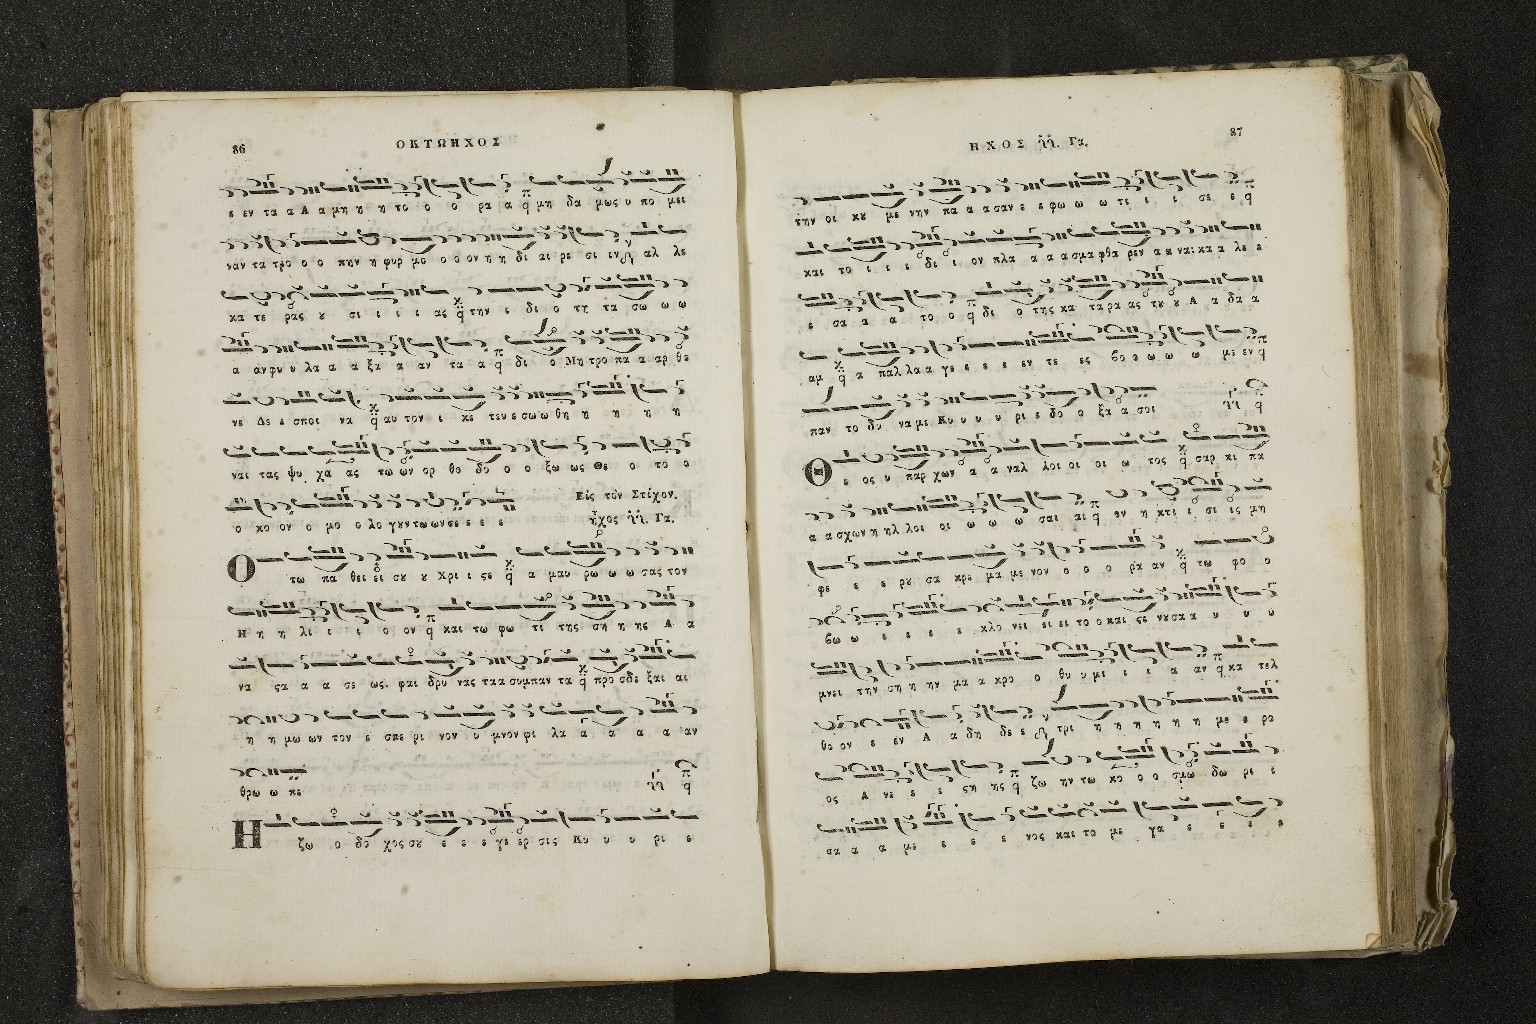 86
ΟΚΤΩΗΧΟΣ
ε εν τα α Α α μη υ η το ο ο ρα α μη δα μως υ πο μει
ναν τα τρο ο ο πην η φυρ μο ο ο ον η η δι αι ρε σι εν αλ λε
κα τε ρας ου σι ι ι ι ας την ι δι ο τη τα σω ω ω
α αν φυ υ λα α α ξα α αν τα α δι ο Μη τρο πα α αρ θε
νε Δε ε σποι να αυ τον ι κε τευ ε σω ω θη η η η η
ναι τας ψυ χα ας τω ων ορ θο δο ο ο ξω ως Θε ο το ο
ο κο ον ο μο ο λο γουν τω ων σε ε ε ε
Εἰς τὸν Στίχον.
ἦχος Γα.
Ο τω πα θει ει σου ου Χρι ι ςε α μαυ ρω ω ω σας τον
Η η η λι ι ι ο ον και τω φω τι της ση η ης Α α
να ςα α α σε ως φαι δρυ νας τα α συμπαν τα προ σδε ξαι αι
η η μω ων τον ε σπε ρι νον υ μνον φι λα α α α α αν
θρω ω πε
Η ζω ο δο χος σου ε ε ε γε ερ σις Κυ υ υ ρι ε
ΗΧΟΣ Γα.
87
την οι κου με νην πα α α σαν ε ε φω ω ω τι ι ι σε ε
και το ι ι ι δι ι ον πλα α α α σμα φθα ρεν α α να: κα α λε ε
ε σα α α το ο δι ο της κα τα ρα ας του ου Α α δα α
αμ α παλ λα α γε ε ε ε εν τε ες βο ο ω ω ω με εν
παν το δυ να με Κυ υ υ υ ρι ε δο ο ξα α σοι
Θ ε ος υ παρ χων α α αναλ λοι οι οι ω τος σαρ κι πα
α α σχων η ηλ λοι οι ω ω ω σαι αι ον η κτι ι σι ις μη
φε ε ε ρου σα κρε μα με νον ο ο ο ρα αν τω φο ο
βω ω ε ε ε ε κλο νει ει ει το ο και ςε νου σα α υ υ υ
μνει την ση η ην μα α κρο ο θυ υ μι ι ι α αν κα τελ
θο ον ε εν Α α δη δε ε τρι η η η η η με ε ρο
ος Α νε ε ε ςη ης ζω ην τω κο ο ο σμω δω ρε ε
σα α α με ε ε ε νος και το με γα ε ε ε ε